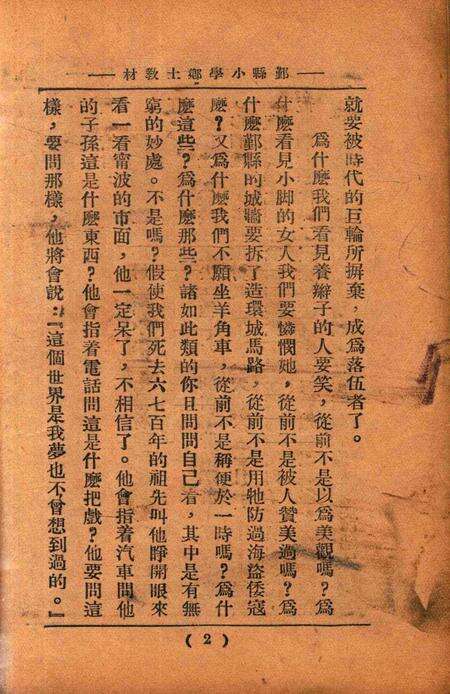 鄞縣小學鄉土教材
就要被時代的巨輪所摒棄，成爲落伍者了。
爲什麽我們看見養辮子的人要笑，從前不是以爲美觀嗎？爲
什麽看見小脚的女人我們要憐憫她，從前不是被人贊美過嗎？爲
什麽鄞縣的城牆要拆了造環城馬路，從前不是用牠防過海盜倭寇
麽？又爲什麽我們不願坐羊角車，從前不是稱便於一時嗎？爲什
麽這些？爲什麽那些？諸如此類的你且問問自己看，其中是有無
窮的妙處。不是嗎？假使我們死去六七百年的祖先叫他睜開眼來
看一看甯波的市面，他一定呆了，不相信了。他會指着汽車問他
的子孫這是什麽東西？他會指着電話問這是什麽把戲？他要問這
樣，要問那樣，他將會說：『這個世界是我夢也不曾想到過的。』
(2)